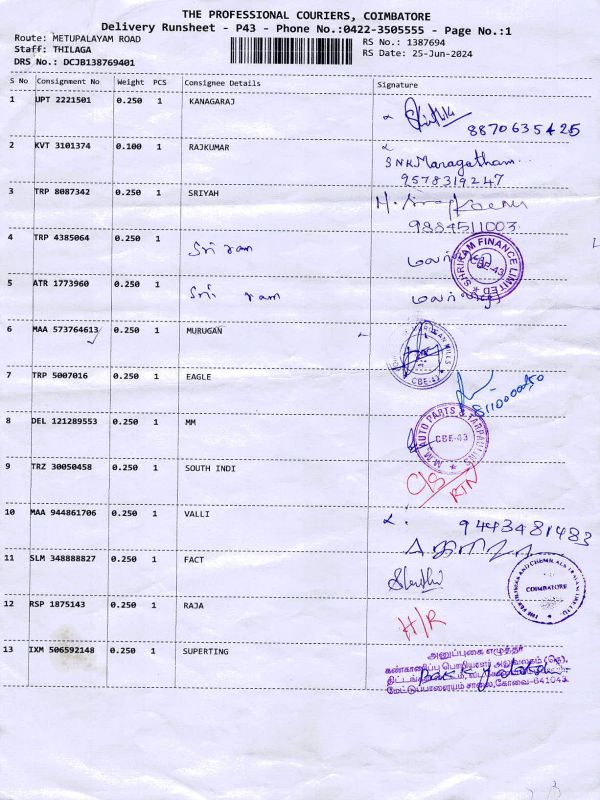 THE PROFESSIONAL COURIERS, COIMBATORE
Delivery Runsheet - P43 - Phone No.:0422-3505555 - Page No.:1
Route: METUPALAYAM ROAD
Staff: THILAGA
DRS No.: DCJB138769401
RS No.: 1387694
RS Date: 25-Jun-2024
S No Consignment No Weight PCS Consignee Details Signature
1 UPT 2221501 0.250 1 KANAGARAJ
8870635425
2 KVT 3101374 0.100 1 RAJKUMAR
SNR Maragatham
9578319247
3 TRP 8087342 0.250 1 SRIYAH
9884511003
4 TRP 4385064 0.250 1 Sri ram
SHRIRAM FINANCE LIMITED
CBE-43
5 ATR 1773960 0.250 1 Sri ram
6 MAA 573764613 0.250 1 MURUGAN
MILLS
CBE-43
7 TRP 5007016 0.250 1 EAGLE
8 DEL 121289553 0.250 1 MM
M.M AUTO PARTS & TARPAULINS
CBE-43
9 TRZ 30050458 0.250 1 SOUTH INDI
C/S
RTN
10 MAA 944861706 0.250 1 VALLI
9443481483
11 SLM 348888827 0.250 1 FACT
COIMBATORE
12 RSP 1875143 0.250 1 RAJA
H/R
13 IXM 506592148 0.250 1 SUPERTING
அனுப்புகை எழுத்தர்
கண்காணிப்பு பொறியாளர் அலுவலகம்
மேட்டுப்பாளையம் சாலை, கோவை-641043